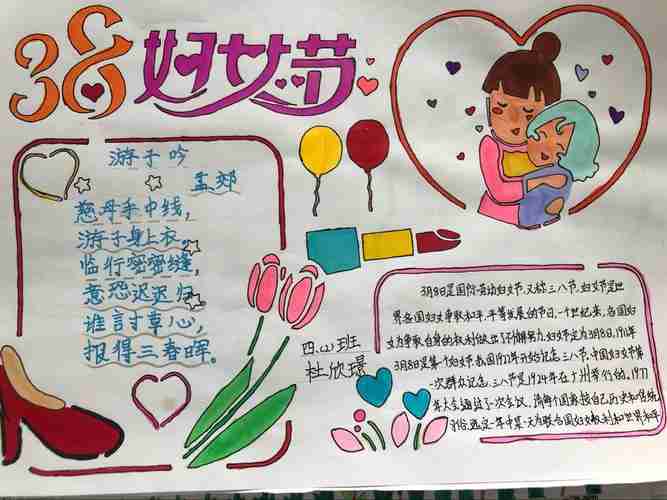 38妇女节
游子吟
孟郊
慈母手中线,
游子身上衣。
临行密密缝,
意恐迟迟归。
谁言寸草心,
报得三春晖。
四.(2)班
杜欣璟
3月8日是国际劳动妇女节.又称三八节,妇女节是世
界各国妇女争取和平,平等发展的节日,一个世纪来,各国妇
女为争取自身的权利做出了不懈努力.妇女节定为3月8日,1911年
3月8日是第一个妇女节.我国1922年开始纪念三八节,中国妇女节第
一次群众纪念三八节是1924年在广州举行的.1977
年大会通过了一次会议,请每个国家按自己历史和传统
习俗,选定一年中某一天为联合国妇女权利和世界和平